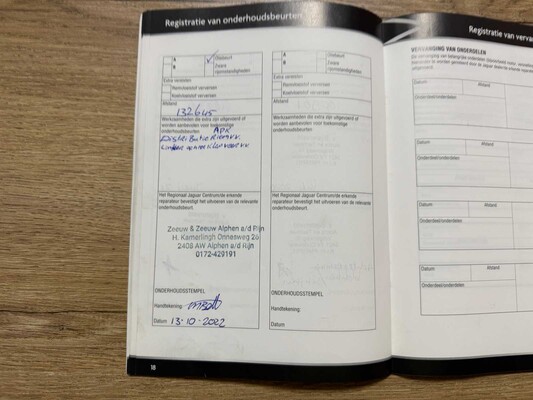 Registratie van onderhoudsbeurten
A
B
Oliebeurt
Zware
rijomstandigheden
Extra vereisten
Remvloeistof verversen
Koelvloeistof verversen
Afstand
132645
Werkzaamheden die extra zijn uitgevoerd of
worden aanbevolen voor toekomstige
onderhoudsbeurten APK
Distributie Riem V.V.
Het Regionaal Jaguar Centrum/de erkende
reparateur bevestigt het uitvoeren van de relevante
onderhoudsbeurt.
Zeeuw & Zeeuw Alphen a/d Rijn
H. Kamerlingh Onnesweg 26
2408 AW Alphen a/d Rijn
0172-429191
ONDERHOUDSSTEMPEL
Handtekening:
Datum 13-10-2022
18
A
B
Oliebeurt
Zware
rijomstandigheden
Extra vereisten
Remvloeistof verversen
Koelvloeistof verversen
Afstand
Werkzaamheden die extra zijn uitgevoerd of
worden aanbevolen voor toekomstige
onderhoudsbeurten
Het Regionaal Jaguar Centrum/de erkende
reparateur bevestigt het uitvoeren van de relevante
onderhoudsbeurt.
ONDERHOUDSSTEMPEL
Handtekening:
Datum
Registratie van
VERVANGING VAN ONDERDELEN
Datum Afstand
Onderdeel/onderdelen
Datum Afstand
Onderdeel/onderdelen
Datum Afstand
Onderdeel/onderdelen
Datum Afstand
Onderdeel/onderdelen